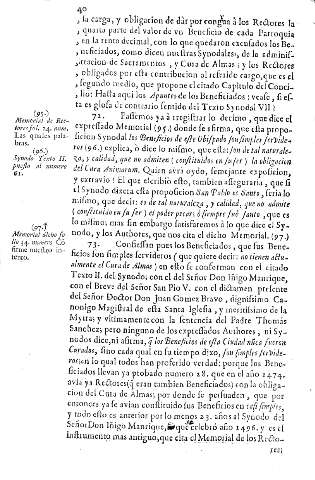 40
, la carga, y obligacion de dàr por congrua à los Rectores la
, quarta parte del valor de vn Beneficio de cada Parroquia
, en la renta decimal, con lo que quedaron excusados los Be-
, neficiados, como dicen nuestras Synodales, de la adminis-
, tracion de Sacramentos, y Cura de Almas; y los Rectores
, obligados por esta contribucion al referido cargo, que es el
, segundo medio, que propone el citado Capitulo del Conci-
, lio: Hasta aquì los Apuntes de los Beneficiados: vease, si es-
ta es glosa de contrario sentido del Texto Synodal VII?
(95.)
Memorial de Rec-
tores fol. 24. num.
Las quales pala-
bras.
(96.)
Synodo Texto II.
puesto al numero
61.
72. Passemos yà à registrar lo decimo, que dice el
expressado Memorial (95.) donde se afirma, que esta propo-
sicion Synodal los Beneficios de este Obispado son simples servide-
ros (96.) explica, ò dice lo mismo, que esta: son de tal naturale-
za, y calidad, que no admiten (constituidos en su ser) la obligacion
del Cura Animarum. Quien avrà oydo, semejante exposicion,
y extravìo! El que escribiò esto, tambien asseguraria, que si
el Synodo dixera esta proposicion San Pablo es Santo, seria lo
mismo, que decir: es de tal naturaleza, y calidad, que no admite
(constituido en su ser) el poder pecar; ò siempre fuè Santo, que es
lo mismo; mas sin embargo satisfaremos à lo que dice el Sy-
nodo, y los Authores, que nos cita el dicho Memorial. (97.)
(97.)
Memorial dicho fo-
lio 24. numero Cò-
firme nuestro in-
tento.
73. Confiessan pues los Beneficiados, que sus Bene-
ficios son simples servideros (que quiere decir: no tienen actu-
almente el Cura de Almas) en esto se conforman con el citado
Texto II. del Synodo, con el del Señor Don Iñigo Manrique,
con el Breve del Señor San Pio V. con el dictamen presente
del Señor Doctor Don Juan Gomez Bravo, dignissimo Ca-
nonigo Magistral de esta Santa Iglesia, y meritissimo de la
Mytra; y vltimamente con la sentencia del Padre Thomàs
Sanchez; pero ninguno de los expressados Authores, ni Sy-
nodos dice, ni afirma, que los Beneficios de esta Ciudad nunca fueron
Curados, sino cada qual en su tiempo dixo, son simples servide-
ros; en lo qual todos han proferido verdad: porque los Bene-
ficiados llevan yà probado numero 28. que en el año 1474.
avia yà Rectores (que eran tambien Beneficiados) con la obliga-
cion del Cura de Almas; por donde se persuaden, que por
entonces yà se avian constituìdo sus Beneficios en ser simples,
y todo esto es anterior por lo menos 23. años al Synodo del
Señor Don Iñigo Manrique, que se celebrò año 1496. y es el
Instrumento mas antiguo, que cita el Memorial de los Recto-